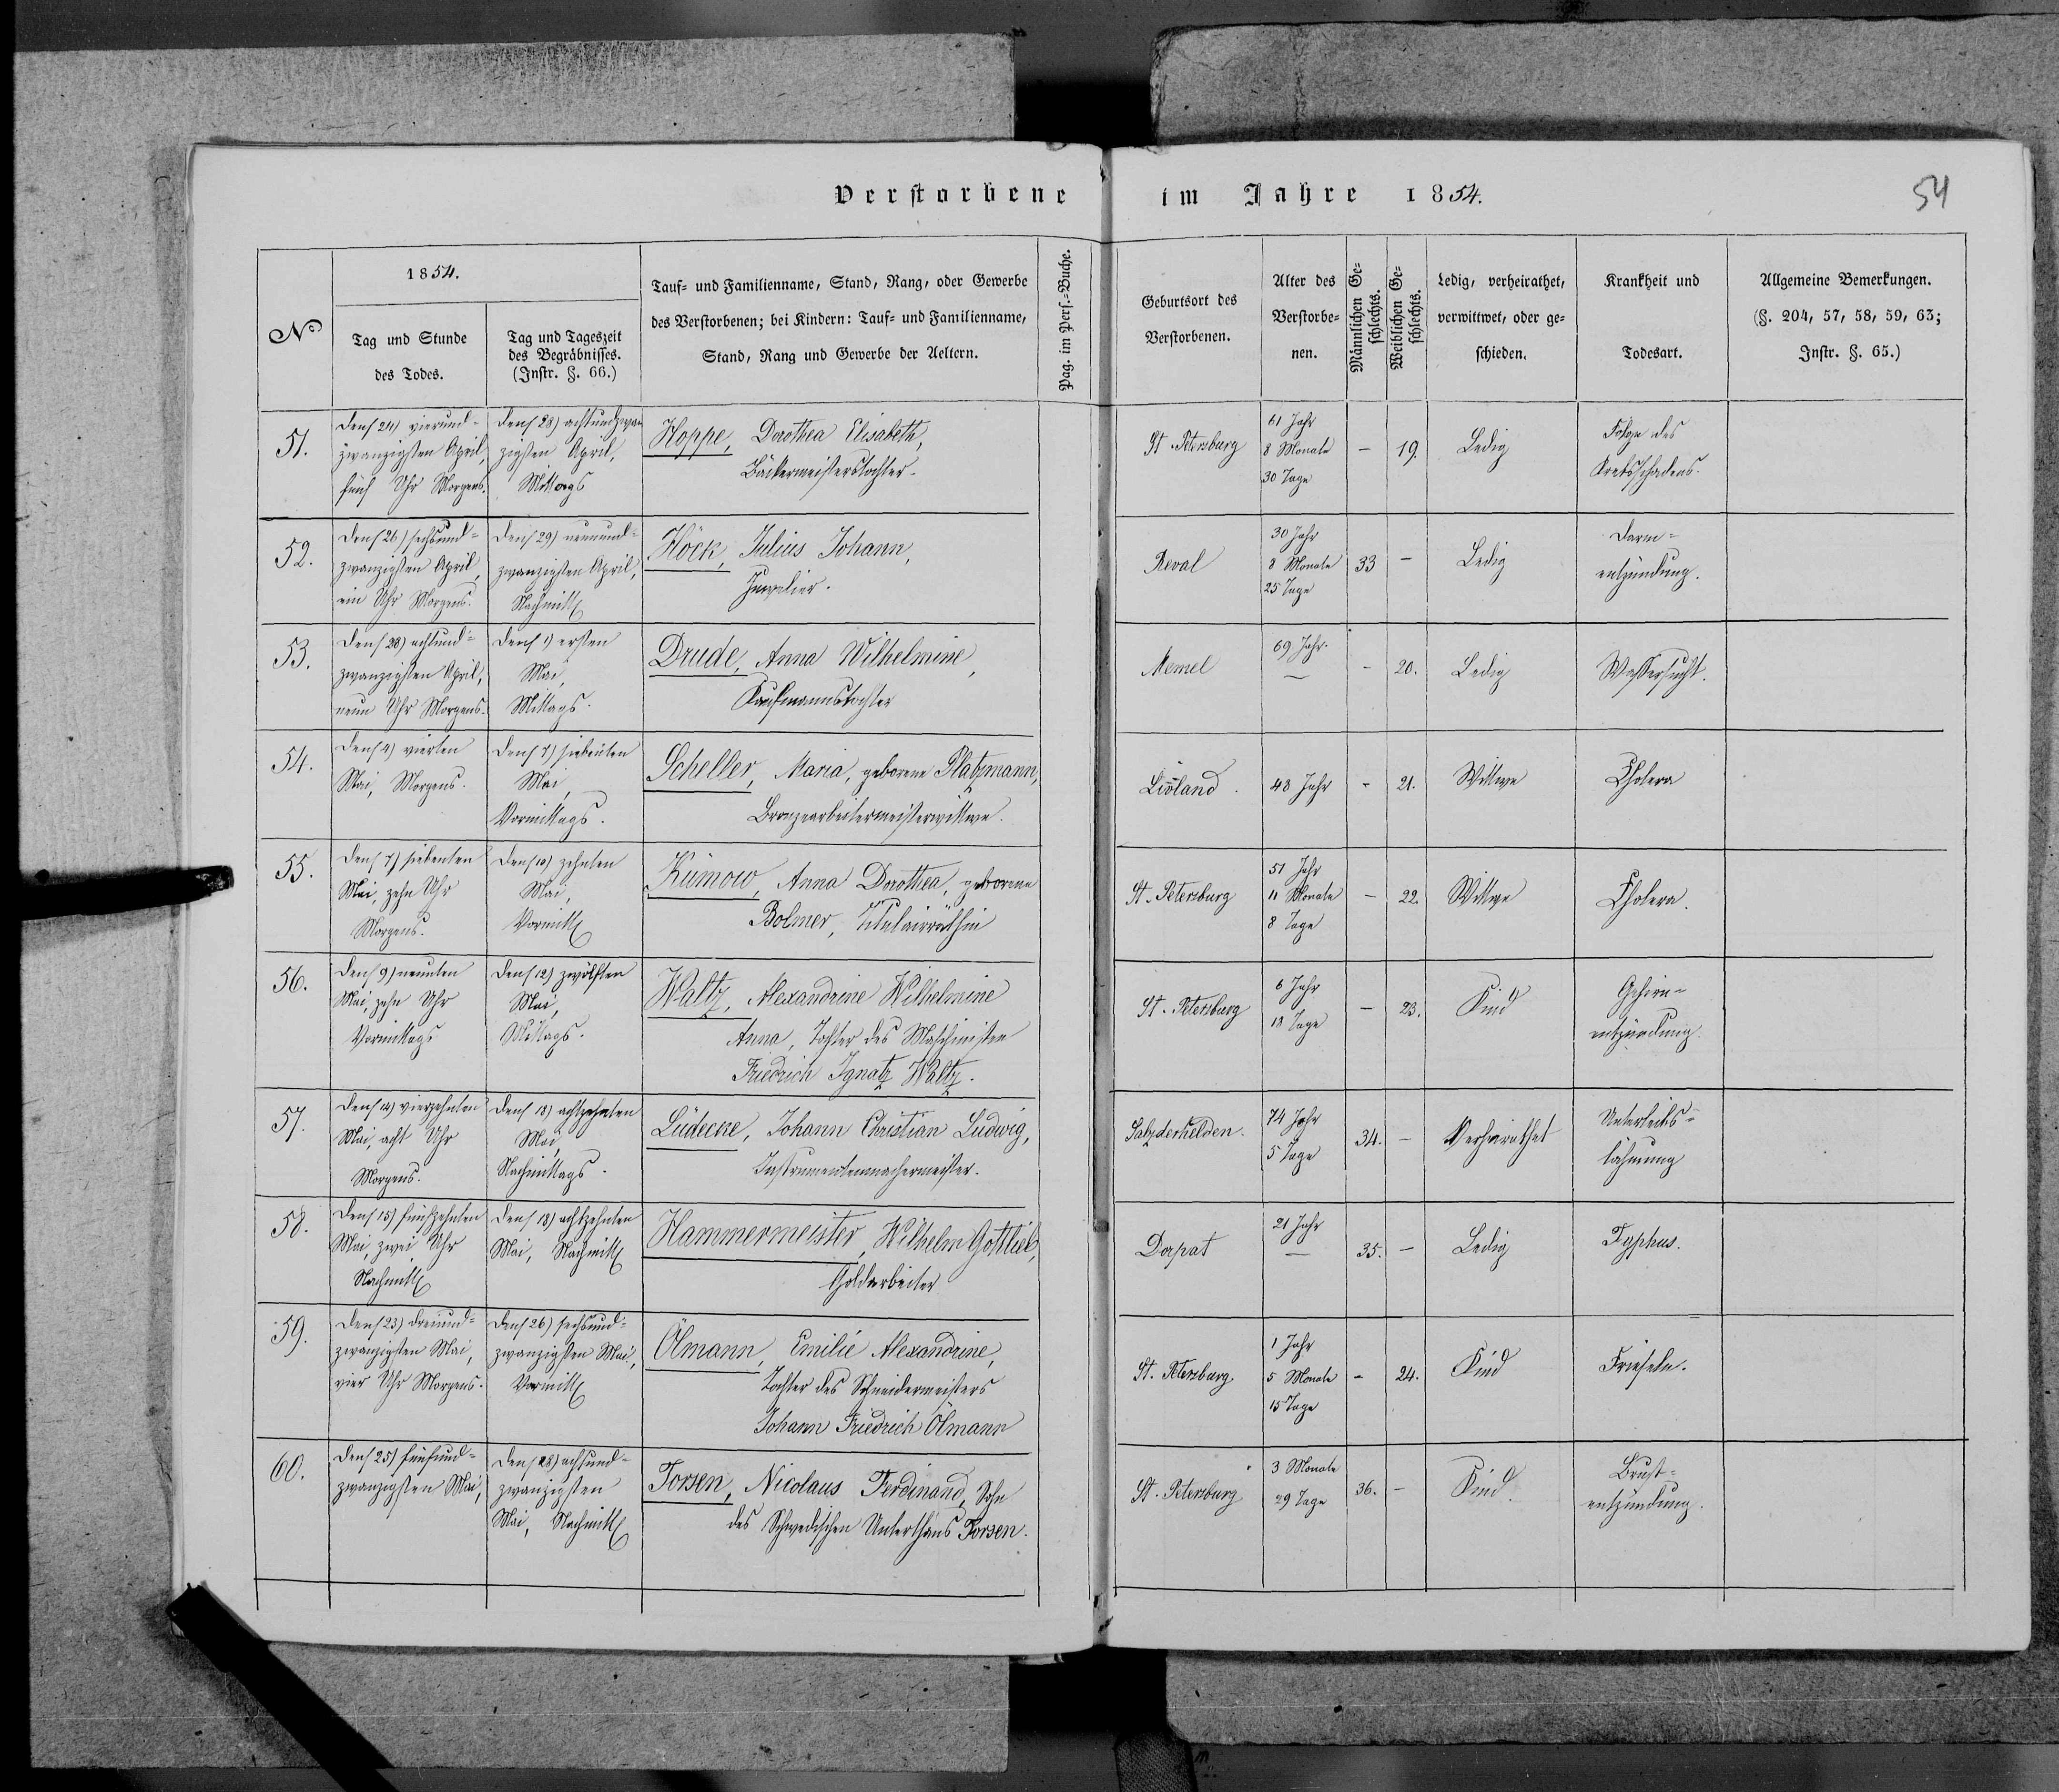 Verstorbene im Jahre 1854.
54
No
1854.
Tag und Stunde
des Todes.
Tag und Tageszeit
des Begräbnisses.
(Instr. §. 66.)
Tauf= und Familienname, Stand, Rang, oder Gewerbe
des Verstorbenen; bei Kindern: Tauf= und Familienname,
Stand, Rang und Gewerbe der Aeltern.
Pag. im Pers.=Buche.
Geburtsort des
Verstorbenen.
Alter des
Verstorbe=
nen.
Männlichen Ge=
schlechts.
Weiblichen Ge=
schlechts.
Ledig, verheirathet,
verwittwet, oder ge=
schieden.
Krankheit und
Todesart.
Allgemeine Bemerkungen.
(§. 204, 57, 58, 59, 63;
Instr. §. 65.)
51.
Den (24) vierund=
zwanzigsten April,
fünf Uhr Morgens.
Den (28) achtundzwan
zigsten April,
Mittags
Hoppe, Dorothea Elisabeth,
Bäckermeisterstochter.
St. Petersburg
61 Jahr
8 Monate
30 Tage
– 19.
Ledig
Folge des
Krebsschadens.
52.
Den (26) sechsund=
zwanzigsten April,
ein Uhr Morgens.
Den (29) neunund=
zwanzigsten April,
Nachmitt
Höck, Julius Johann,
Juwelier.
Reval
30 Jahr
8 Monate
25 Tage
33 –
Ledig
Darm=
entzündung.
53.
Den (28) achtund=
zwanzigsten April,
neun Uhr Morgens.
Den (1) ersten
Mai,
Mittags.
Drude, Anna Wilhelmine,
Kaufmannstochter
Memel
69 Jahr.
–
– 20.
Ledig
Wassersucht.
54.
Den (4) vierten
Mai, Morgens.
Den (7) siebenten
Mai,
Vormittags.
Scheller, Maria, geborene Platzmann,
Bronzearbeitermeisterwittwe.
Livland.
43 Jahr
– 21.
Wittwe
Cholera
55.
Den (7) siebenten
Mai, zehn Uhr
Morgens.
Den (10) zehnten
Mai,
Vormitt
Kümow, Anna Dorothea, geborene
Bolmer, Titulairräthin
St. Petersburg
51 Jahr
11 Monate
8 Tage
– 22.
Wittwe
Cholera.
56.
Den (9) neunten
Mai, zehn Uhr
Vormittags
Den (12) zwölften
Mai,
Mittags.
Waltz, Alexandrine Wilhelmine
Anna, Tochter des Maschinisten
Friedrich Ignatz Waltz.
St. Petersburg
6 Jahr
18 Tage
– 23.
Kind
Gehirn=
entzündung.
57.
Den (14) vierzehnten
Mai, acht Uhr
Morgens.
Den (18) achtzehnten
Mai,
Nachmittags.
Lüdecke, Johann Christian Ludwig,
Instrumentenmachermeister.
Salzderhelden.
74 Jahr
5 Tage
34. –
Verheirathet
Unterleibs=
lähmung
58.
Den (15) fünfzehnten
Mai, zwei Uhr
Nachmitt
Den (18) achtzehnten
Mai, Nachmitt
Hammermeister, Wilhelm Gottlieb,
Goldarbeiter
Dorpat
21 Jahr
–
35. –
Ledig
Typhus.
59.
Den (23) dreiund=
zwanzigsten Mai,
vier Uhr Morgens.
Den (26) sechsund=
zwanzigsten Mai,
Vormitt
Ölmann, Emilie Alexandrine,
Tochter des Schneidermeisters
Johann Friedrich Ölmann
St. Petersburg.
1 Jahr
5 Monate
15 Tage
– 24.
Kind
Frieseln.
60.
Den (25) fünfund=
zwanzigsten Mai,
Den (28) achtund=
zwanzigsten
Mai, Nachmitt
Torsen, Nicolaus Ferdinand, Sohn
des Schwedischen Unterthans Torsen.
St. Petersburg
3 Monate
29 Tage
36. –
Kind.
Brust=
entzündung.